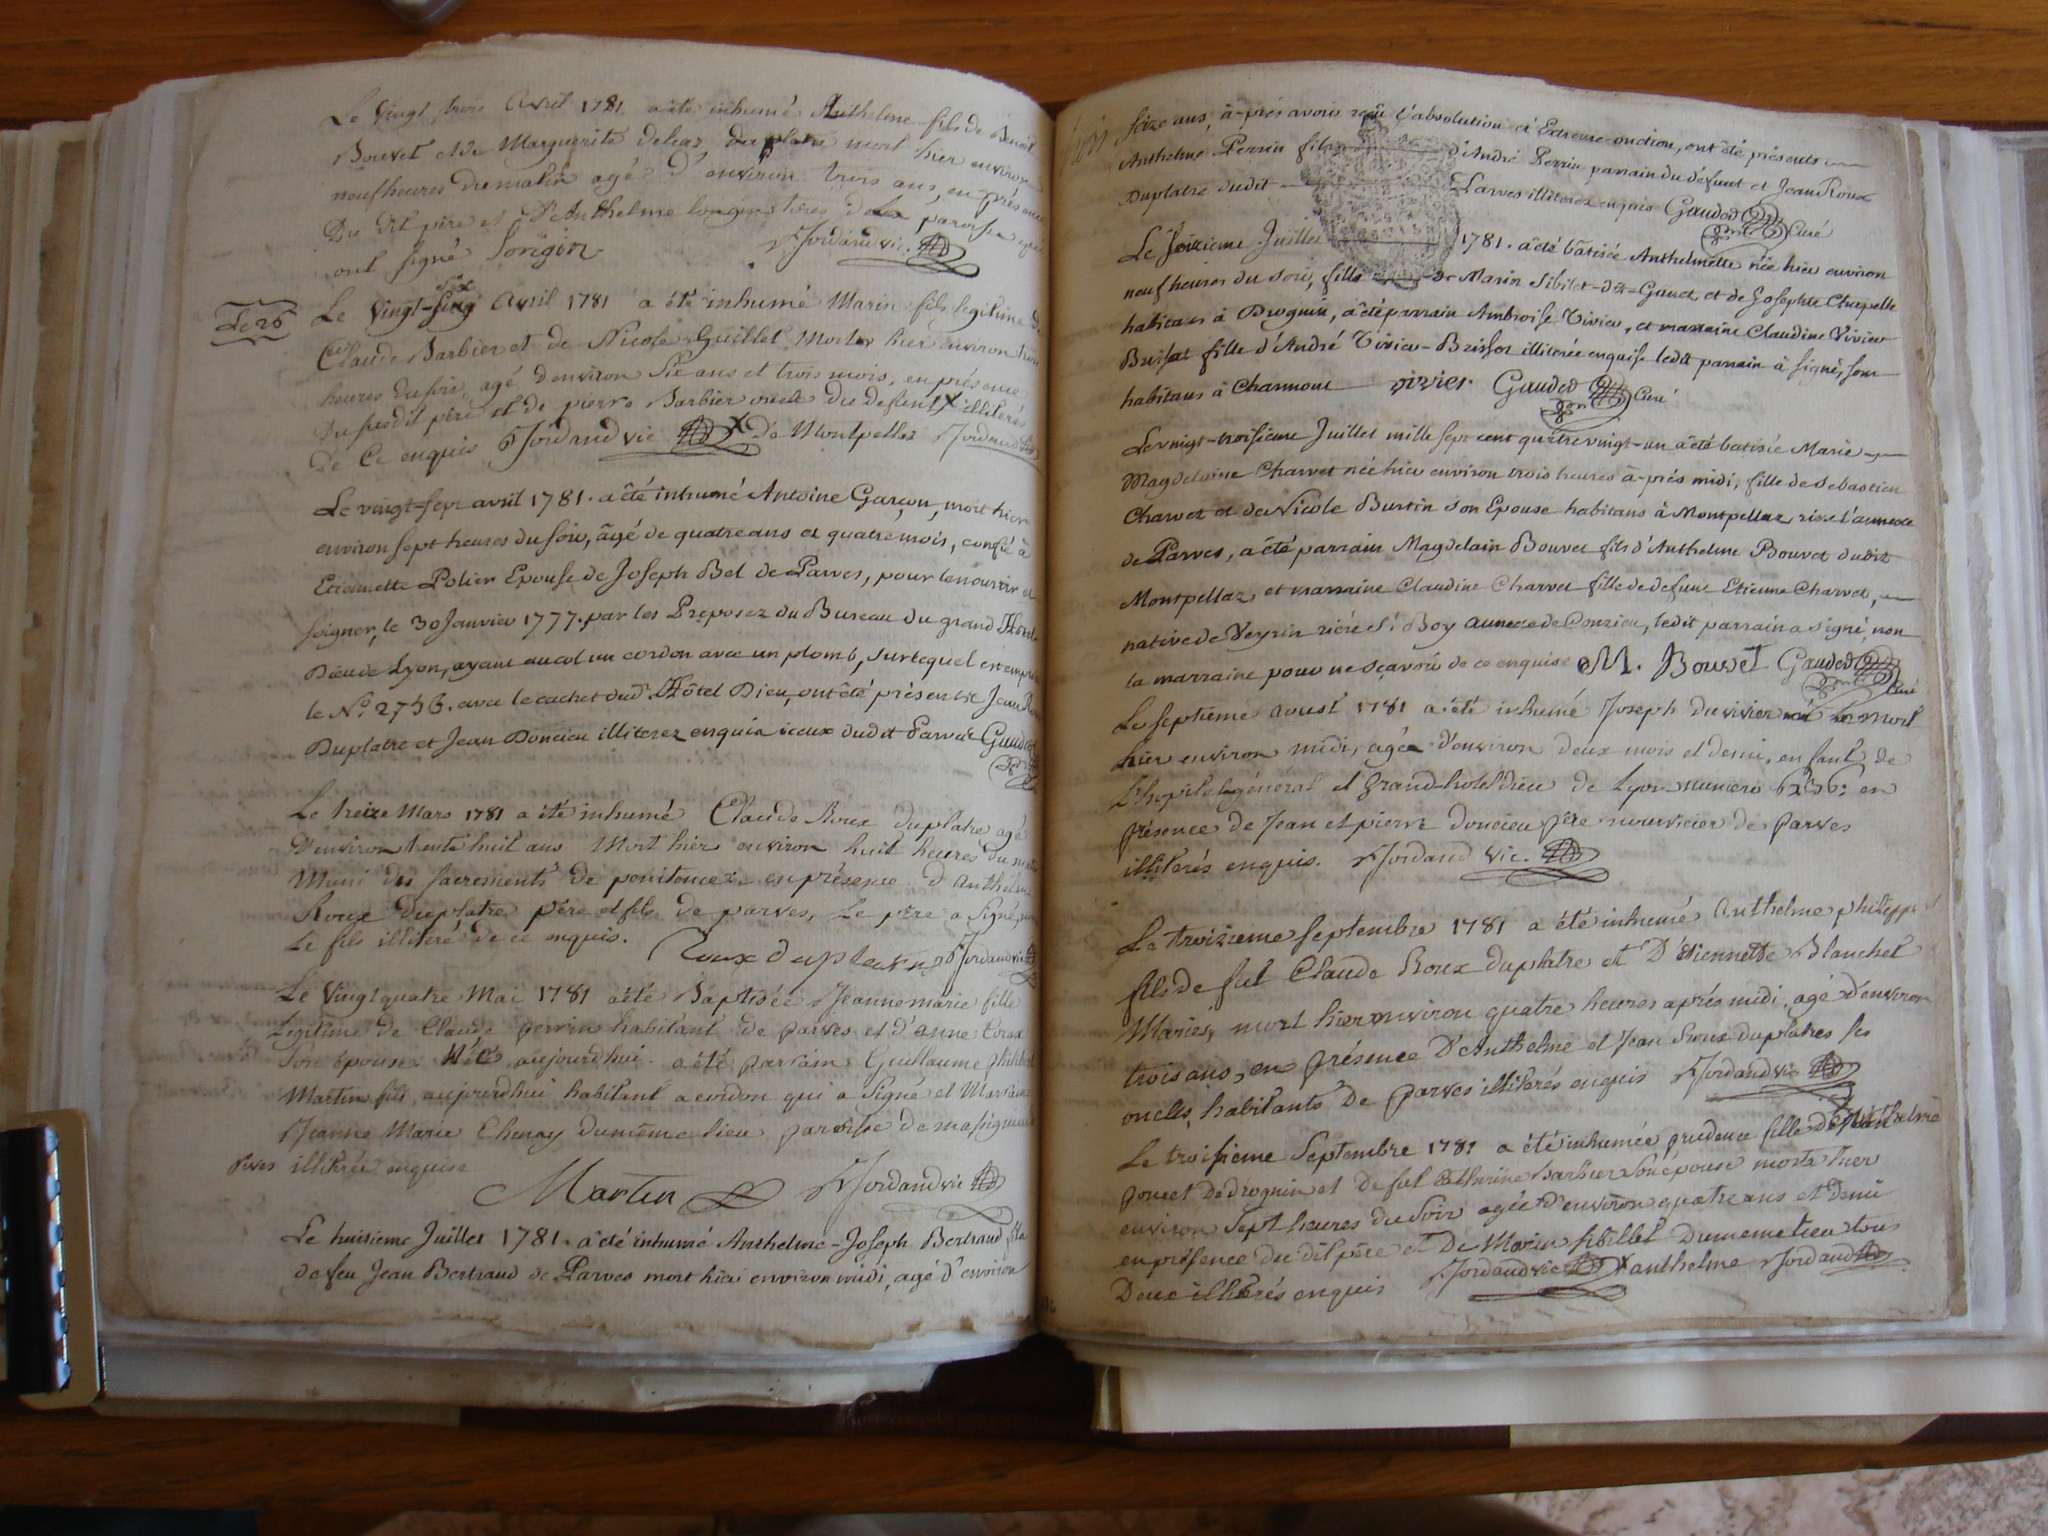 Le Vingt trois Avril 1781 a été inhumé Anthelme fils de Benoit
Bouvet et de Marguerite duplatre mort hier environ
neuf heures du matin agé d'environ trois ans, en présence
Du dit père et d'Anthelme longin tiers de la paroisse
ont signé Longin Jordand vic.
Le 26
six
Le Vingt-cinq Avril 1781 a été inhumé Marin fils legitime de
Claude Barbier et de Nicole Guillet morts hier environ
heures du soir, agé d'environ six ans et trois mois, en présence
Du susdit père et de pierre Barbier oncle du defunt X illiterés
De Ce enquis Jordand vic X de Montpellaz Jordand vic
Le vingt-sept avril 1781. a été inhumé Antoine Garçon, mort hier
environ sept heures du soir, âgé de quatre ans et quatre mois, confié à
Etiennette Polier Epouse de Joseph Bel de Parves, pour le nourrir et
soigner, le 30 Janvier 1777. par les Preposez du Bureau du grand Hôtel
Dieu de Lyon, ayant au col un cordon avec un plomb, sur lequel est empreint
le N.o avec le cachet dud.t Hôtel Dieu, ont été présents Jean Roux
Duplatre et Jean Doncieu illiterez enquis iceux dudit Parves Gauded
Le treize Mars 1781 a été inhumé Claude Roux duplatre agé
D'environ trente huit ans Mort hier environ huit heures du matin
Muni des sacrements de penitence en présence d'Anthelme
Roux duplatre père et fils de parves, Le père a Signé,
Le fils illiteré de ce enquis. Roux duplatre Jordand vic
Le Vingt quatre Mai 1781 a été Baptisée Jeanne marie fille
Legitime de Claude perrin habitant de parves et d'anne
Son epouse Née aujourdhui. a été parrain Guillaume philibert
Martin fils, aujourdhui habitant a cordon qui a Signé et Marraine
Jeanne Marie Chenay du même lieu paroisse de
illiterée enquise
Martin Jordand vic
Le huitieme Juillet 1781. a été inhumé Anthelme-Joseph Bertrand fils
de feu Jean Bertrand de Parves mort hier environ midi, agé d'environ
seize ans, à-près avoir reçû l'absolution et Extreme-onction, ont été présents
Anthelme Perrin fils d'André Perrin parrain du défunt et Jean Roux
Duplatre dudit Parves illiterez enquis Gauded Curé
Le seizieme Juillet 1781. a été batisée Anthelmette née hier environ
neuf heures du soir, fille de Marin Sibilet-dt-Gauet et de Josephte Chapelle
habitans à Drognin, a été parrain Ambroise Vivier, et marraine Claudine Vivier
Buissat fille d'André Vivier-Brissot illiterée enquise ledit parrain à signé, sont
habitans à Charmont vivier Gauded Curé
Le vingt-troisieme Juillet mille sept cent quatre vingt-un a été batisée Marie
Magdelaine Charvet née hier environ trois heures à-près midi, fille de Sebastien
Charvet et de Nicole Burtin son Epouse habitans à Montpellaz riere l'annexe
de Parves, a été parrain Magdelain Bouvet fils d'Anthelme Bouvet dudit
Montpellaz et marraine Claudine Charvet fille de defunt Etienne Charvet,
native de Veyrin riere St Boy annexe de Conzieu, ledit parrain a signé, non
la marraine pour ne sçavoir de ce enquise M. Bouvet Gauded Curé
Le septieme aoust 1781 a été inhumé Joseph duvivier mort
hier environ midi, agé d'environ deux mois et demi, enfant de
L'hopital général et grand-hotel dieu de Lyon numero en
présence de Jean et pierre doncieu père nourricier de parves
illiterés enquis. Jordand vic.
Le troizieme septembre 1781 a été inhumé Anthelme philippe
fils de fut Claude Roux duplatre et D'étiennette Blanchet
Mariés, mort hier environ quatre heures après midi, agé d'environ
trois ans, en présence D'Anthelme et Jean Roux duplatres ses
oncles, habitants De parves illiterés enquis Jordand vic
Le troisieme Septembre 1781 a été inhumée prudence fille d'Anthelme
poncet de drognin et de fut Catherine Barbier Son épouse morte hier
environ Sept heures du Soir agée d'environ quatre ans et demi
en présence du dit père et De Marin Sibillet Du meme lieu tous
Deux illiterés enquis Jordand vic X anthelme Jordand